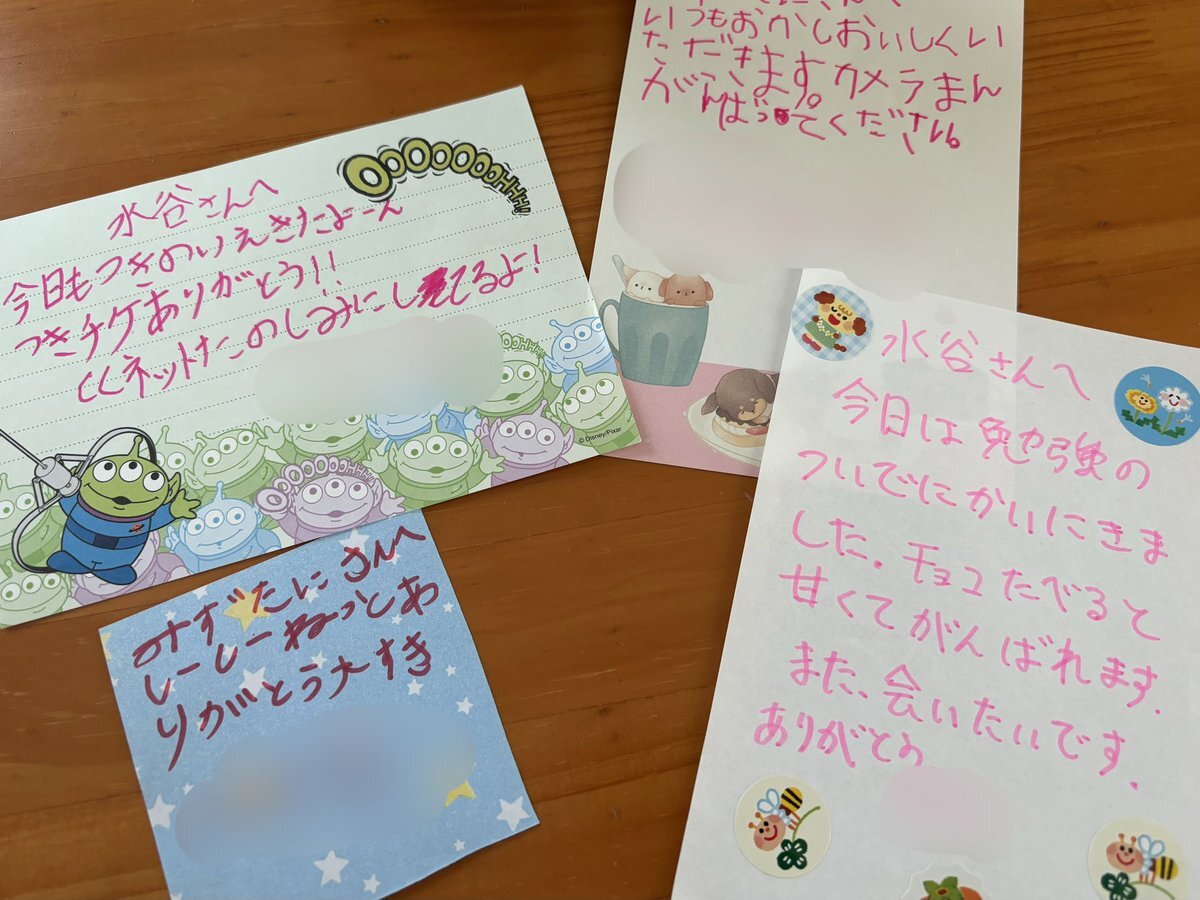 OOOOOOOOHHH!!
水谷さんへ
今日もつきのいえきたよーん
つきチケありがとう!!
CCネットたのしみにしてるよ!
©Disney/Pixar
いつもおかしおいしくい
ただきます。カメラまん
がんばってください。
みずたにさんへ
しーしーねっとあ
りがとう大すき
水谷さんへ
今日は勉強の
ついでにかいにきま
した。チョコたべると
甘くてがんばれます.
また、会いたいです.
ありがとう.